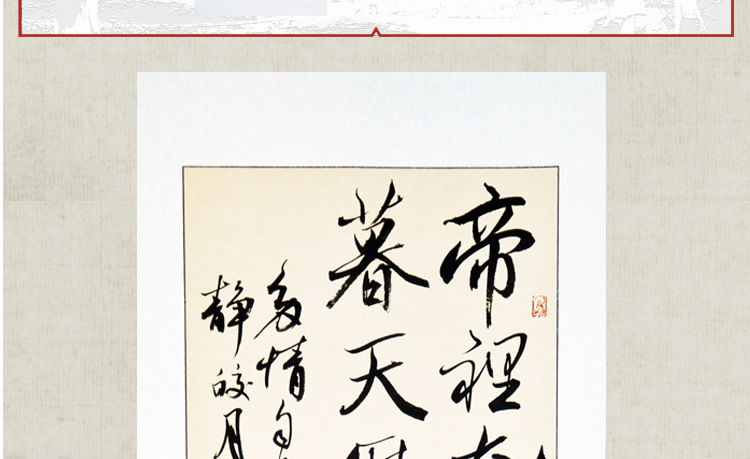 帝裡
暮天
多情自
靜皎月